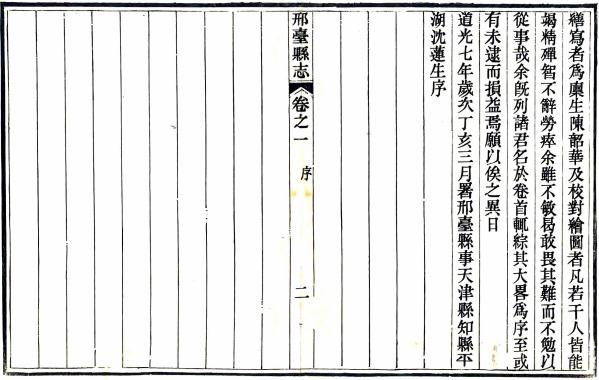 繕寫者為廩生陳韶華及校對繪圖者凡若干人皆能
竭精殫智不辭勞瘁余雖不敏曷敢畏其難而不勉以
從事哉余既列諸君名於卷首輒綜其大畧為序至或
有未逮而損益焉願以俟之異日
道光七年歲次丁亥三月署邢臺縣事天津縣知縣平
湖沈蓮生序
邢臺縣志
卷之一
序
二